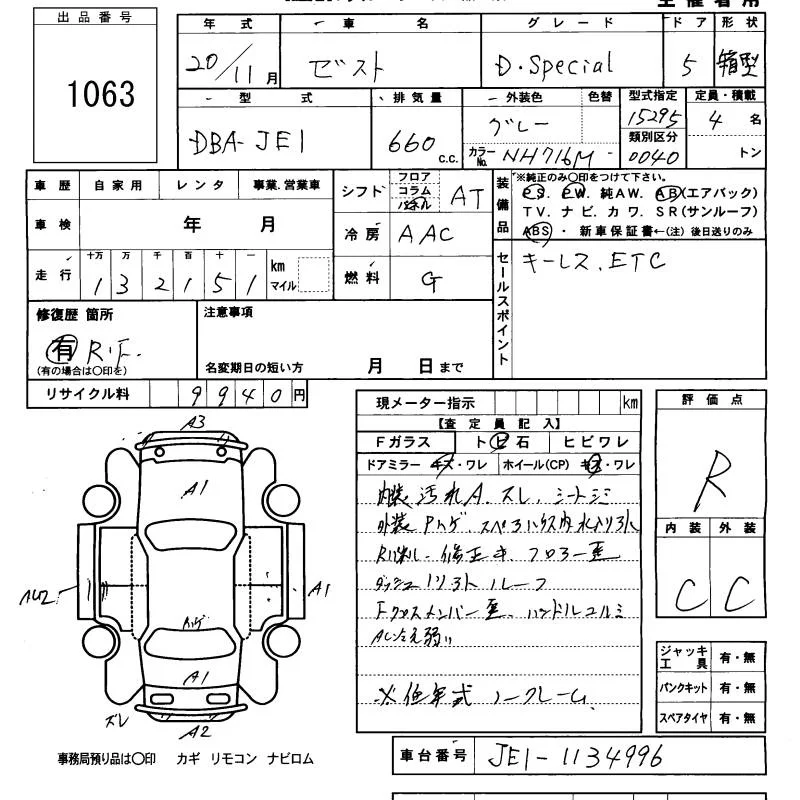 出品番号
1063
年式 車名 グレード ドア 形状
20/11月 ゼスト D・Special 5 箱型
型式 排気量 外装色 色替 型式指定 定員・積載
DBA-JE1 660 c.c. グレー 15295 4 名
カラーNo. NH716M 類別区分 0040 トン
車歴 自家用 レンタ 事業.営業車
車検 年 月
走行 十万 万 千 百 十 一
1 3 2 1 5 1 km マイル
シフト フロア コラム パネル AT
冷房 AAC
燃料 G
装備品
※純正のみ○印をつけて下さい。
PS. PW. 純AW. AB(エアバック)
TV. ナビ. カワ. SR(サンルーフ)
ABS・ 新車保証書←(注) 後日送りのみ
セールスポイント
キーレス、ETC
修復歴 箇所
有 R・F.
(有の場合は○印を)
注意事項
名変期日の短い方 月 日まで
リサイクル料 9940円
現メーター指示 km
【査定員記入】
Fガラス トビ石 ヒビワレ
ドアミラー キズ・ワレ ホイール(CP) キズ・ワレ
内装 汚れA、スレ、シートシミ
外装
ルーフ
Fクロスメンバー
※低年式 ノークレーム
評価点
R
内装 外装
C C
A3
A1
A1
A1
A2
ズレ
ジャッキ 工具 有・無
パンクキット 有・無
スペアタイヤ 有・無
事務局預り品は○印 カギ リモコン ナビロム
車台番号 JE1-1134996